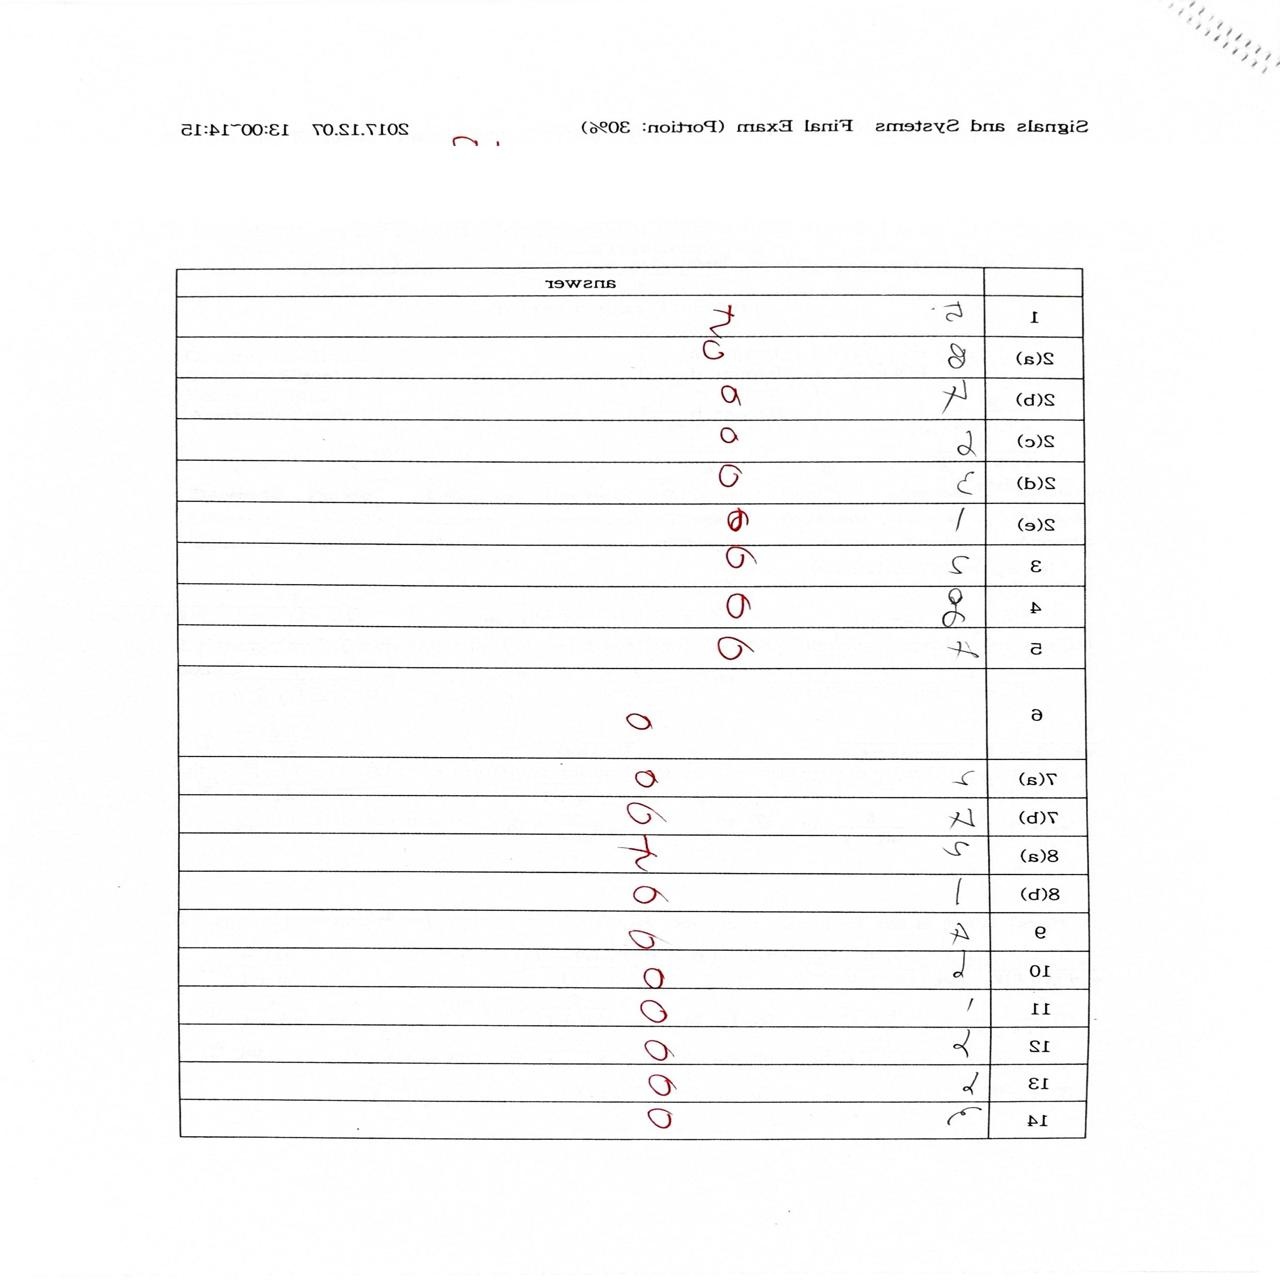 Signals and Systems Final Exam (Portion: 30%) 2017.12.07 13:00~14:15
answer
1 5.
2(a) 8 0
2(b) 7 0
2(c) 2 0
2(d) 3 0
2(e) 1
3 5 0
4 0
5 4 0
6 0
7(a) 5 0
7(b) 7 0
8(a) 5
8(b) 1 0
9 4 0
10 2 0
11 1 0
12 2 0
13 2 0
14 0